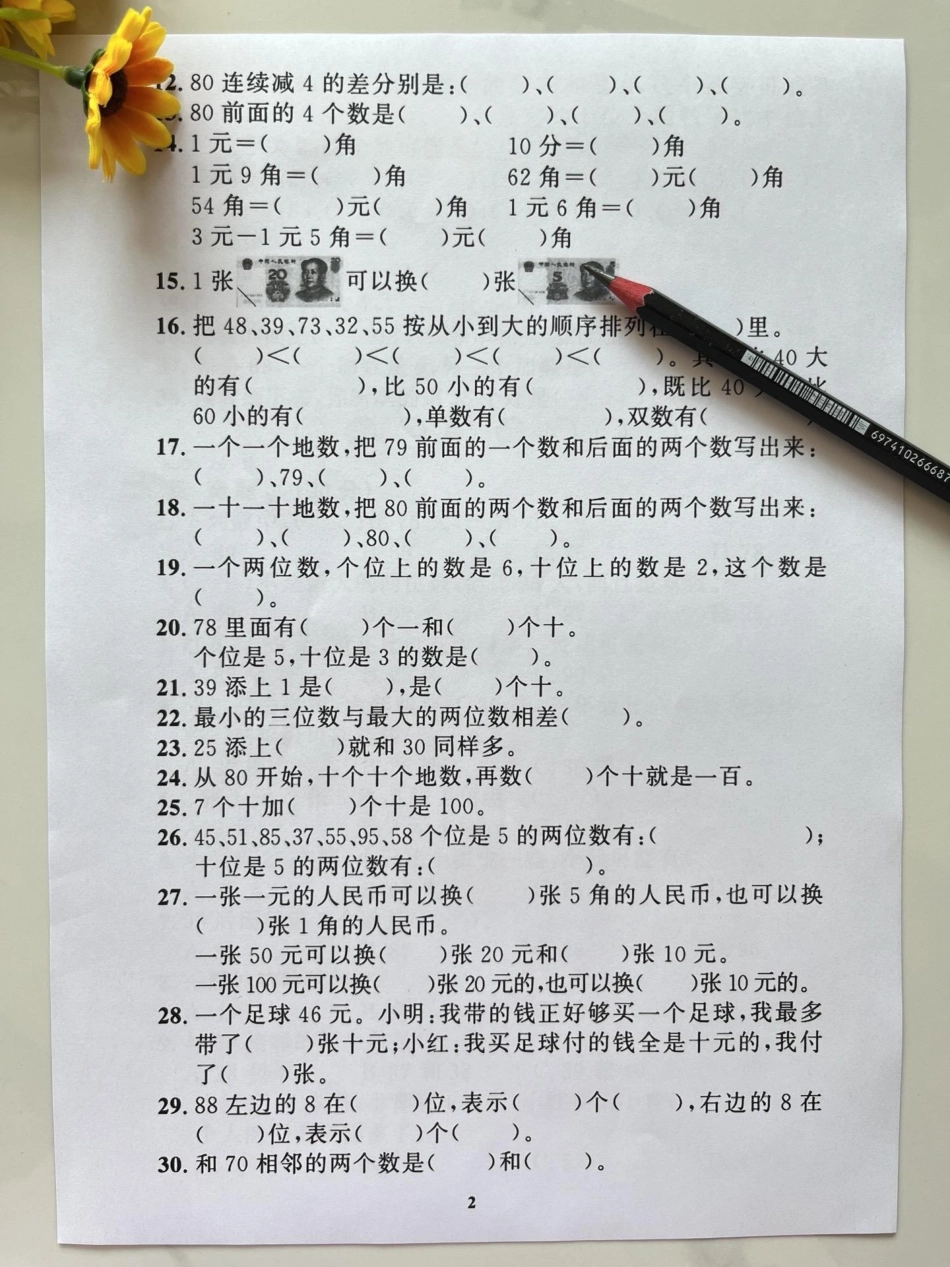 2. 80 连续减 4 的差分别是:(　　)、(　　)、(　　)、(　　)。
80 前面的 4 个数是(　　)、(　　)、(　　)、(　　)。
4. 1 元=(　　)角　　10 分=(　　)角
1 元 9 角=(　　)角　　62 角=(　　)元(　　)角
54 角=(　　)元(　　)角　1 元 6 角=(　　)角
3 元-1 元 5 角=(　　)元(　　)角
15. 1 张 20 可以换(　　)张 5
16. 把 48、39、73、32、55 按从小到大的顺序排列 )里。
(　　)<(　　)<(　　)<(　　)<(　　)。其 40 大
的有(　　　　),比 50 小的有(　　　　),既比 40
60 小的有(　　　　),单数有(　　　　),双数有(
17. 一个一个地数,把 79 前面的一个数和后面的两个数写出来:
(　　)、79、(　　)、(　　)。
18. 一十一十地数,把 80 前面的两个数和后面的两个数写出来:
(　　)、(　　)、80、(　　)、(　　)。
19. 一个两位数,个位上的数是 6,十位上的数是 2,这个数是
(　　)。
20. 78 里面有(　　)个一和(　　)个十。
个位是 5,十位是 3 的数是(　　)。
21. 39 添上 1 是(　　),是(　　)个十。
22. 最小的三位数与最大的两位数相差(　　)。
23. 25 添上(　　)就和 30 同样多。
24. 从 80 开始,十个十个地数,再数(　　)个十就是一百。
25. 7 个十加(　　)个十是 100。
26. 45、51、85、37、55、95、58 个位是 5 的两位数有:(　　　　　　);
十位是 5 的两位数有:(　　　　　　)。
27. 一张一元的人民币可以换(　　)张 5 角的人民币,也可以换
(　　)张 1 角的人民币。
一张 50 元可以换(　　)张 20 元和(　　)张 10 元。
一张 100 元可以换(　　)张 20 元的,也可以换(　　)张 10 元的。
28. 一个足球 46 元。小明:我带的钱正好够买一个足球,我最多
带了(　　)张十元;小红:我买足球付的钱全是十元的,我付
了(　　)张。
29. 88 左边的 8 在(　　)位,表示(　　)个(　　),右边的 8 在
(　　)位,表示(　　)个(　　)。
30. 和 70 相邻的两个数是(　　)和(　　)。
2